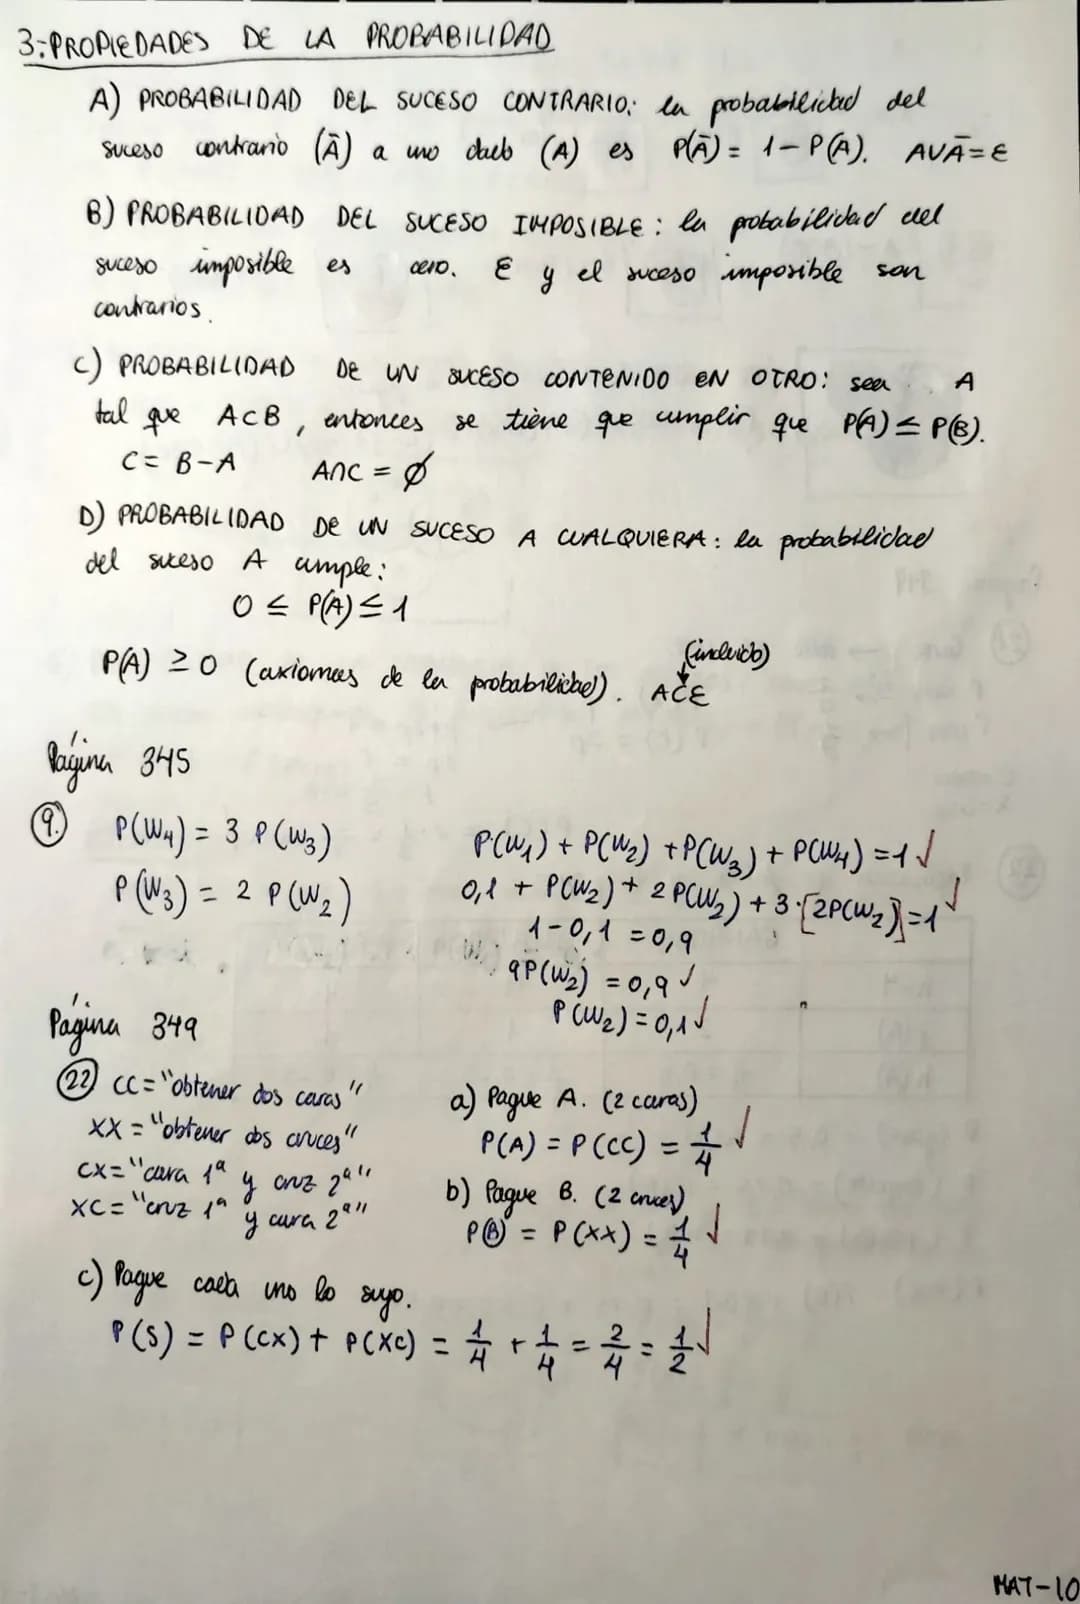 3.-PROPIEDADES DE LA PROBABILIDAD
A) PROBABILIDAD DEL SUCESO CONTRARIO: la probabilidad del
suceso contrario (Ā) a uno dado (A) es P(Ā) = 1 - P(A). A∪Ā=E
B) PROBABILIDAD DEL SUCESO IMPOSIBLE: la probabilidad del
suceso imposible es cero. E y el suceso imposible son
contrarios.
C) PROBABILIDAD DE UN SUCESO CONTENIDO EN OTRO: sea A
tal que A⊂B, entonces se tiene que cumplir que P(A) ≤ P(B).
C = B-A A∩C = Ø
D) PROBABILIDAD DE UN SUCESO A CUALQUIERA: la probabilidad
del suceso A cumple:
0 ≤ P(A) ≤ 1
(incluido)
P(A) ≥ 0 (axiomas de la probabilidad). A⊂E
Página 345
9. P(W₄) = 3 P(W₃)
P(W₃) = 2 P(W₂)
P(W₁) + P(W₂) + P(W₃) + P(W₄) = 1 ✓
0,1 + P(W₂) + 2P(W₂) + 3·[2P(W₂)] = 1 ✓
1-0,1 = 0,9
9P(W₂) = 0,9 ✓
P(W₂) = 0,1 ✓
Página 349
22 CC = "obtener dos caras"
XX = "obtener dos cruces"
CX = "cara 1ª y cruz 2ª"
XC = "cruz 1ª y cara 2ª"
a) Pague A. (2 caras)
P(A) = P(CC) = 1/4 ✓
b) Pague B. (2 cruces)
P(B) = P(XX) = 1/4 ✓
c) Pague cada uno lo suyo.
P(S) = P(CX) + P(XC) = 1/4 + 1/4 = 2/4 = 1/2 ✓
MAT-10